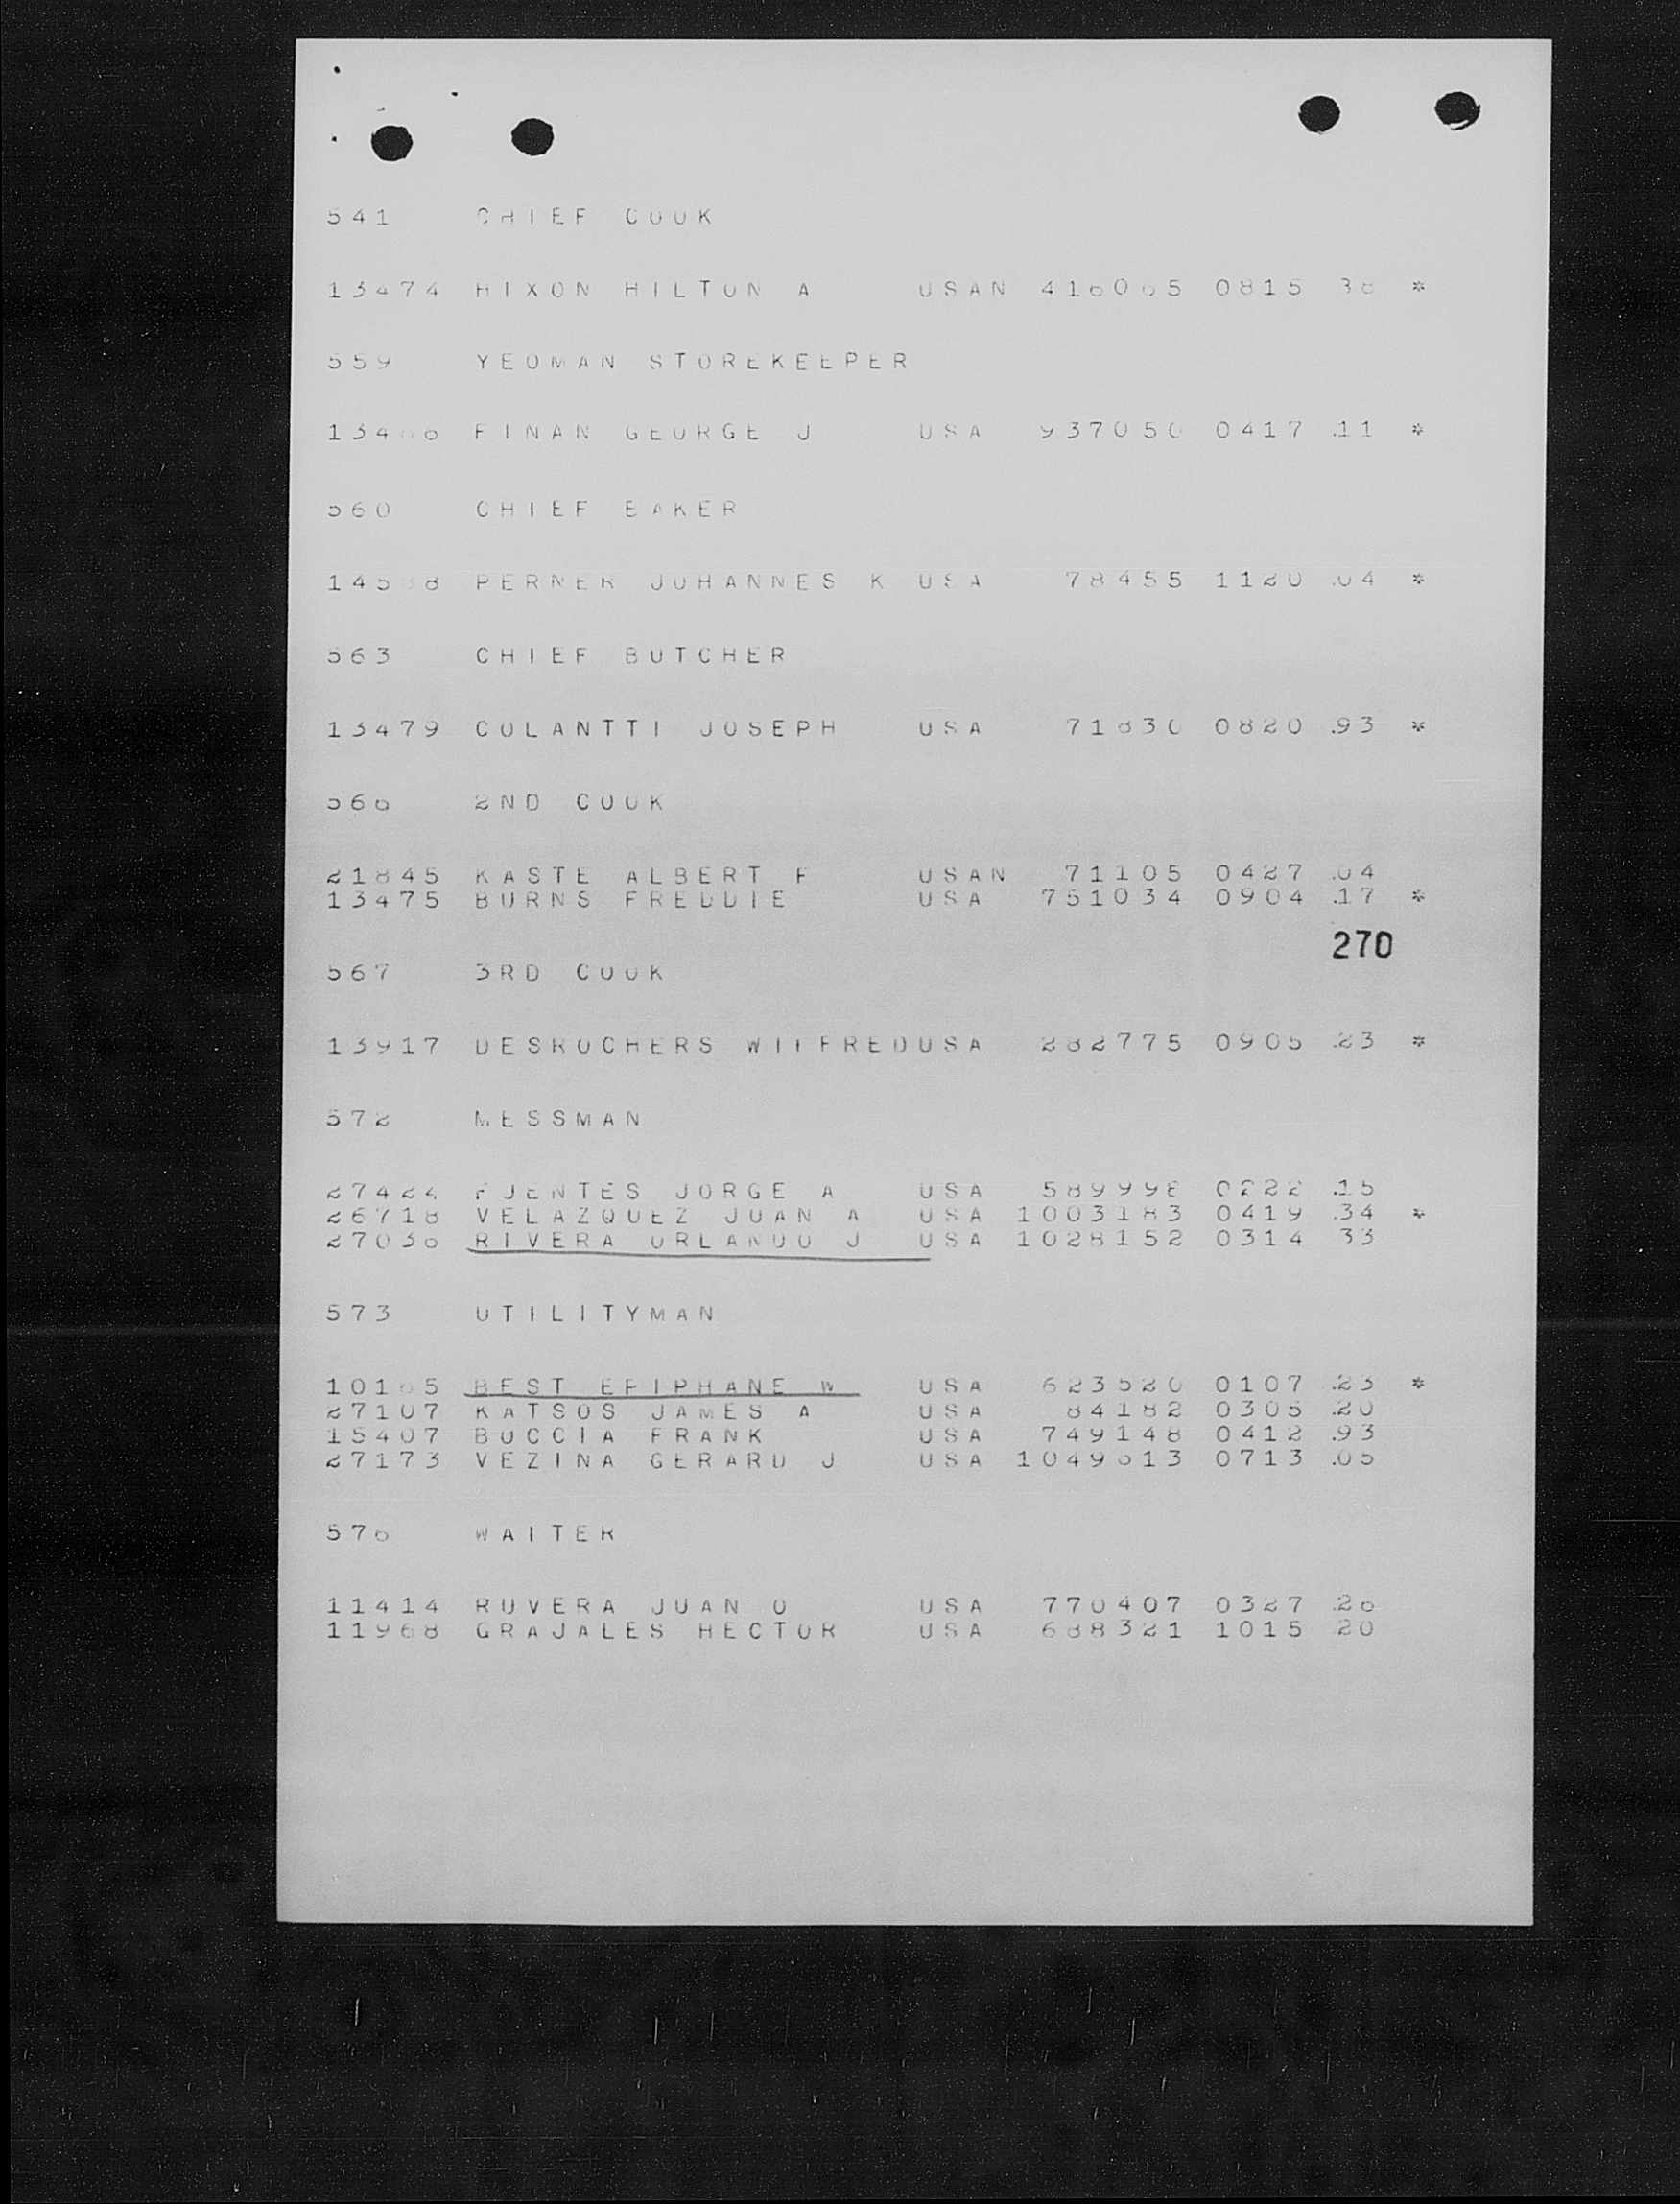 541 CHIEF COOK
13474 HIXON HILTON A USAN 416065 0815 38 *
559 YEOMAN STOREKEEPER
FINAN GEORGE J USA 937050 0417 .11 *
560 CHIEF BAKER
PERNER JOHANNES K USA 78455 1120 .04 *
563 CHIEF BUTCHER
13479 COLANTTI JOSEPH USA 71830 0820 .93 *
566 2ND COOK
21845 KASTE ALBERT F USAN 71105 0427 .04
13475 BURNS FREDDIE USA 751034 0904 .17 *
270
567 3RD COOK
13917 DESROCHERS WILFRED USA 282775 0905 .23 *
572 MESSMAN
27424 FUENTES JORGE A USA 589998 0222 .15
26718 VELAZQUEZ JUAN A USA 1003183 0419 .34 *
27036 RIVERA ORLANDO J USA 1028152 0314 33
573 UTILITYMAN
10165 BEST EPIPHANE W USA 623520 0107 .23 *
27107 KATSOS JAMES A USA 84182 0305 .20
15407 BOCCIA FRANK USA 749148 0412 .93
27173 VEZINA GERARD J USA 1049613 0713 .05
576 WAITER
11414 RUVERA JUAN O USA 770407 0327 .26
11968 GRAJALES HECTOR USA 688321 1015 20